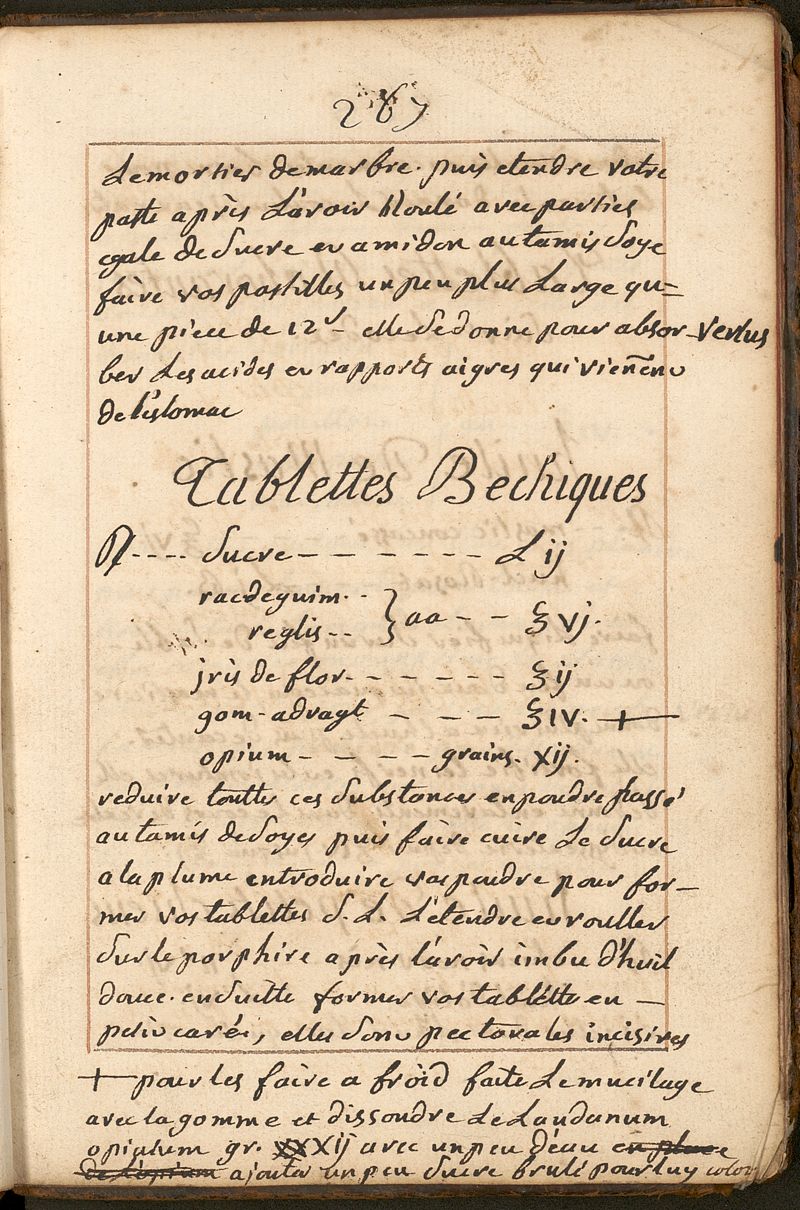 267
Le mortier de marbre. puis etendre votre
patte après L'avoir Roulé avec parties
egale de Sucre eu amidon au tamis Soye
faire vos pastilles un peu plus Large qu=
une piece de 12ˢ - elle Se donne pour absor- Vertus
ber Les acides eu rapports aigres qui vien̄enu
de l'estomac
Tablettes Bechiques
℞ ---- Sucre - - - - - - - L ij
rac de guim. - -
reglis - - } aa - - ℥ vj.
jris de flor. - - - - - - ℥ ij
gom - adragt - - - ℥ IV. +
opium - - - - grains. Xij.
reduire touttes ces Substances en poudre passé
au tamis de Soyes puis faire cuire Le Sucre
a la plume entroduire vos poudre pour for-
mer vos tablettes S. L. L'etendre eu rouller
Sur le porphire après l'avoir imbu d'huil
douce. en Suitte former vos tablétte en -
petiu carée, elles Sonu pectorales incisives
+ pour les faire a froid faite Le mucilage
avec la gomme et dissoudre Le Laudanum
opiatum gr. XXXij avec un peu d'eau en place
de L'opium ajouter un peu Sucre brulé pour luy color